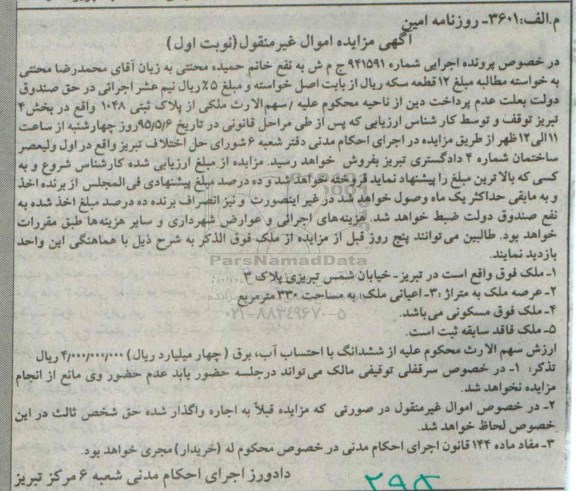 م.الف:۳۶۰۱- روزنامه امین
آگهی مزایده اموال غیرمنقول(نوبت اول)
در خصوص پرونده اجرایی شماره ۹۴۱۵۹۱ ج م ش به نفع خانم حمیده محنتی به زیان آقای محمدرضا محنتی
به خواسته مطالبه مبلغ ۱۲ قطعه سکه ریال از بابت اصل خواسته و مبلغ ۵٪ ریال نیم عشر اجرائی در حق صندوق
دولت بعلت عدم پرداخت دین از ناحیه محکوم علیه /سهم الارث ملکی از پلاک ثبتی ۱۰۴۸ واقع در بخش ۴
تبریز توقف و توسط کارشناس ارزیابی که پس از طی مراحل قانونی در تاریخ ۹۵/۵/۶ روز چهارشنبه از ساعت
۱۱الی۱۲ ظهر از طریق مزایده در اجرای احکام مدنی دفتر شعبه ۶ شورای حل اختلاف تبریز واقع در اول ولیعصر
ساختمان شماره ۴ دادگستری تبریز بفروش خواهد رسید. مزایده از مبلغ ارزیابی شده کارشناس شروع و به
کسی که بالاترین مبلغ را پیشنهاد نماید فروخته خواهد شد و ده درصد مبلغ پیشنهادی فی المجلس از برنده اخذ
و به مابقی حداکثر یک ماه وصول خواهد شد در غیر اینصورت و نیز انصراف برنده ده درصد مبلغ اخذ شده به
نفع صندوق دولت ضبط خواهد شد. هزینه‌های اجرائی و عوارض شهرداری و سایر هزینه‌ها طبق مقررات
خواهد بود. طالبین می‌توانند پنج روز قبل از مزایده از ملک فوق الذکر به شرح ذیل با هماهنگی این واحد
بازدید نمایند.
ParsNamadData
۱- ملک فوق واقع است در تبریز- خیابان شمس تبریزی پلاک ۳
۲- عرصه ملک به متراژ :۳- اعیانی ملک: به مساحت ۳۳۰ مترمربع
۰۲۱-۸۸۳۴۹۶۷۰-۵
۴- ملک فوق مسکونی می‌باشد.
۵- ملک فاقد سابقه ثبت است.
ارزش سهم الارث محکوم علیه از ششدانگ با احتساب آب، برق ( چهار میلیارد ریال) ۴/۰۰۰/۰۰۰/۰۰۰ ریال
تذکر: ۱- در خصوص سرقفلی توقیفی مالک می تواند درجلسه حضور یابد عدم حضور وی مانع از انجام
مزایده نخواهد شد.
۲- در خصوص اموال غیرمنقول در صورتی که مزایده قبلاً به اجاره واگذار شده حق شخص ثالث در این
خصوص لحاظ خواهد شد.
۳- مفاد ماده ۱۴۴ قانون اجرای احکام مدنی در خصوص محکوم له (خریدار) مجری خواهد بود.
دادورز اجرای احکام مدنی شعبه ۶ مرکز تبریز
۲۹۵